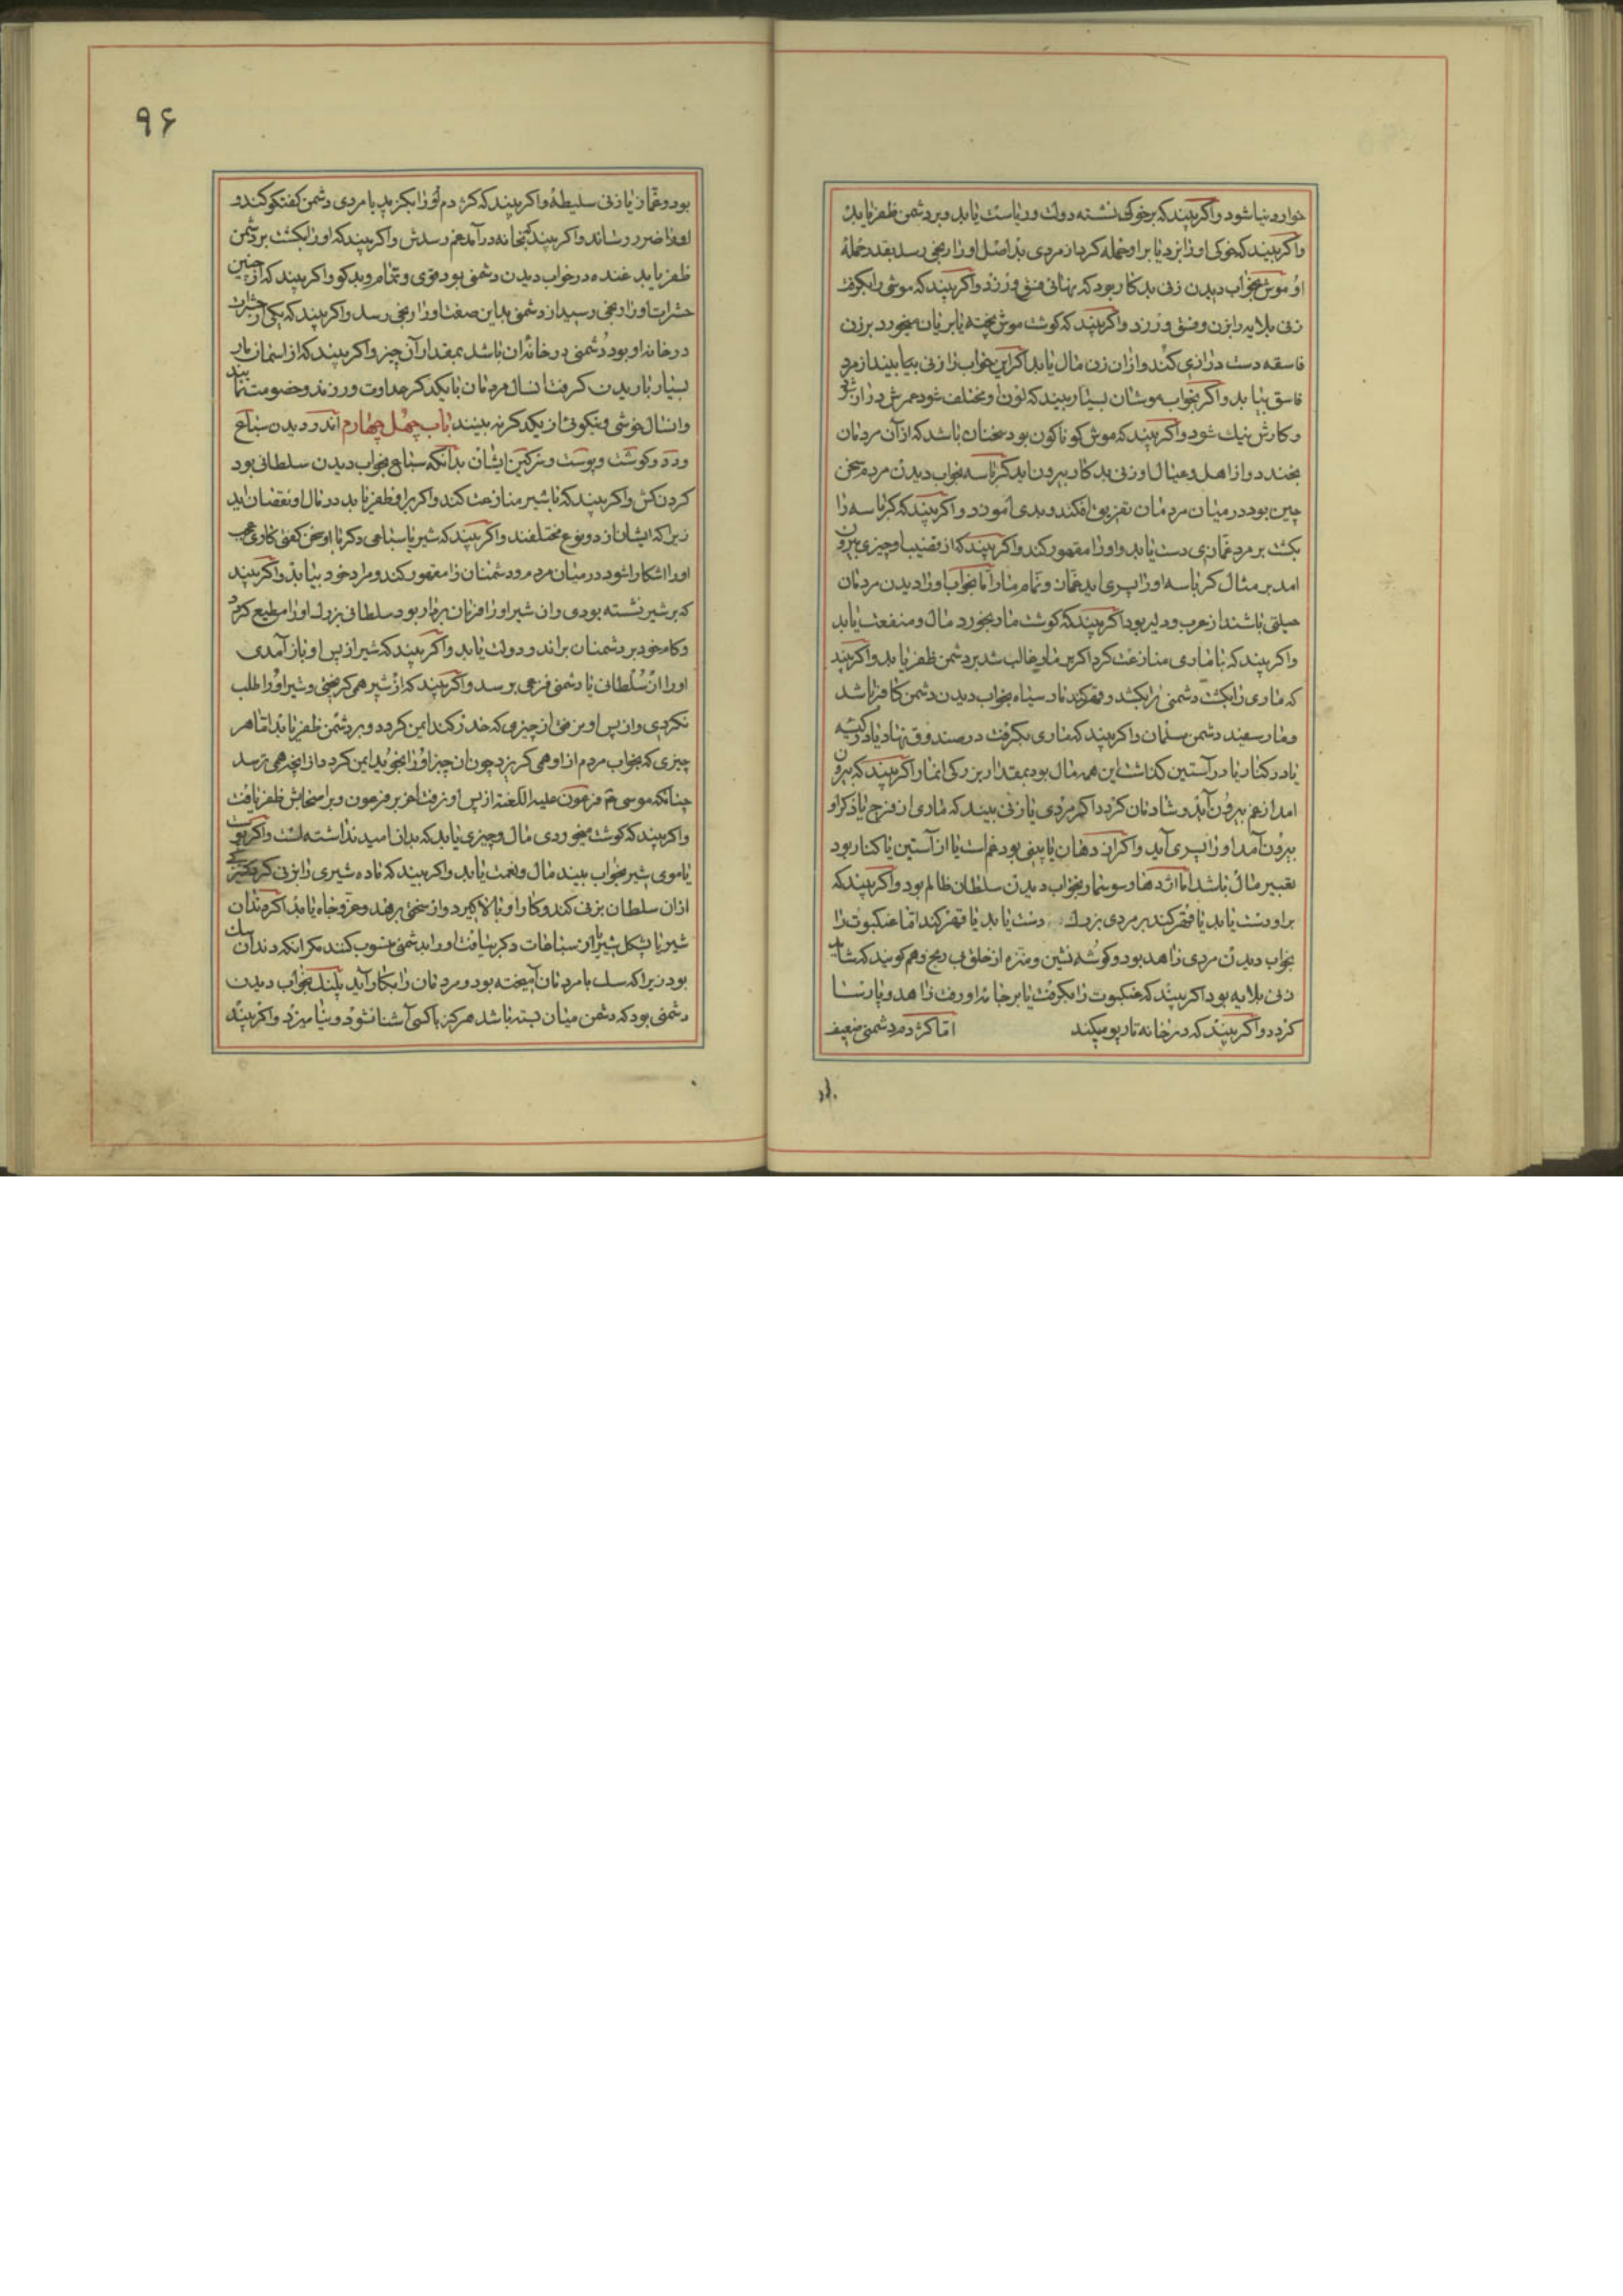 خوار دنیا شود و اکر بیند که بر خوکی نشسته دولت و ریاست یابد و بر دشمن ظفر یابد
و اکر بیند که خوکی او را بزد یا بر او حمله کرد از مردی بد اصل او را رنجی رسد بقدر حمله
او موش بخواب دیدن زنی بد کار بود که نهانی فسق ورزد و اکر بیند که موشی را بکرفت
زنی بلایه را بزن و فسق ورزد و اکر بیند که کوشت موش پخته یا بریان میخورد بر زن
فاسقه دست درازی کند و از ان زن مال یابد اکر این خواب را زنی بیند از مرد
فاسق بیابد و اکر بخواب موشان بسیار بیند که لون او مختلف شود عمرش دراز
و کارش نیك شود و اکر بیند که موش کوناکون بود سخنان باشد که از آن مردمان
بخندد و از اهل و عیال او زنی بد کار بیرون اید کرباسه بخواب دیدن مردم سخن
چین بود در میان مردمان تفریق افکند و بدی آموزد و اکر بیند که کرباسه را
بکشت بر مرد غمازی دست یابد و او را مقهور کند و اکر بیند که از قضیب او چیزی بیرون
امد بر مثال کرباسه او را پسری اید غماز و نمام مار اما بخواب او را دیدن مردمان
حیلتی باشند از حرب و دلیر بود اکر بیند که کوشت مار بخورد مال و منفعت یابد
و اکر بیند که با ماری منازعت کرد اکر بر مار غالب شد بر دشمن ظفر یابد و اکر بیند
که ماری را بکشت دشمنی را بکشد و قهر کند مار سیاه بخواب دیدن دشمن کافر باشد
و مار سفید دشمن مسلمان و اکر بیند که ماری بکرفت در صندوق نهاد یا در کیسه
یا در کنار یا در آستین کذاشت این همه مال بود بمقدار بزرکی انمار اکر بیند که بیرون
امد از غم بیرون آید و شادمان کردد اکر مردی یا زنی بیند که ماری از فرج یا ذکر او
بیرون آمد او را پسری آید و اکر از دهان یا بینی بود غم است یا از آستین یا کنار بود
تعبیر مال باشد اما اژدها و سوسمار بخواب دیدن سلطان ظالم بود و اکر بیند که
بر او دست یابد یا قهر کند بر مردی بزرك دست یابد یا قهر کند اما عنکبوت را
بخواب دیدن مردی زاهد بود و کوشه نشین و متزه از خلق بی رنج و هم کویند که
زنی بلایه بود اکر بیند که عنکبوت را بکرفت یا بر خانه او رفت زاهد و پارسا
کردد و اکر بیند که در خانه تار یو میکند اما کژدم دشمنی ضعیف
بود
بود و غماز یا زنی سلیطه و اکر بیند که کژدم او را بکزید با مردی دشمن کفتکو کند و
او را ضرر رساند و اکر بیند که بخانه در آمد غم رسدش و اکر بیند که او را بکشت بر دشمن
ظفر یابد غنده در خواب دیدن دشمنی بود قوی و نمام و بد کو و اکر بیند که از چنین
حشرات او را رنجی رسید از دشمنی بداین صفت او را رنجی رسد و اکر بیند که یکی از حشرات
در خانه او بود دشمنی در خانه ان باشد بمقدار آن چیز و اکر بیند که از اسمان مار
بسیار باریدن کرفت ان سال مردمان با یکدکر عداوت ورزند و خصومت نمایند
و ان سال خوشی و نیکوئی از یکدکر نه بینند باب چهل چهارم اندر دیدن سباع
و دد و کوشت و پوست و سرکین ایشان بدانکه سباع بخواب دیدن سلطانی بود
کردن کش و اکر بیند که با شیر منازعت کند و اکر بر او ظفر یابد در مال او نقصان اید
زیرا که ایشان از دو نوع مختلفند و اکر بیند که شیر یا سباعی دکر با او سخن کفتی کاری عجب
او را اشکارا شود در میان مردم و دشمنان را مقهور کند و مراد خود بیابد و اکر بیند
که بر شیر نشسته بودی و ان شیر او را فرمان بردار بود سلطانی بزرك او را مطیع کردد
و کام خود بر دشمنان براند و دولت یابد و اکر بیند که شیر از پس او باز آمدی
او را از سلطان یا دشمنی فزعی برسد و اکر بیند که از شیر همی کریختی و شیر او را طلب
نکردی و از پس او نرفتی از چیزی که حذر کند ایمن کردد و بر دشمن ظفر یابد اما هر
چیزی که بخواب مردم از او همی کریزد چون ان چیز او را نجوید ایمن کردد از انچه همی ترسد
چنانکه موسی فرعون علیه اللعنة از پس او نرفت اخر بر فرعون و بر اصحابش ظفر یافت
و اکر بیند که کوشت میخوردی مال و چیزی یابد که بدان امید نداشته است و اکر پوست
یا موی شیر بخواب بیند مال و نعمت یابد و اکر بیند که ماده شیری را بزنی کرد
از ان سلطان بزنی کند و کار او بالا کیرد و از سختی برهد و عز و جاه یابد اکر دندان
شیر یا شکل شیر از سباطات دکر بیافت او را بدشمنی منسوب کنند مکر انکه دندان سك
بود زیرا که سك با مردمان آمیخته بود و مردمان را بکار آید پلنك بخواب دیدن
دشمنی بود که دشمن میان بسته باشد هرکز با کسی آشنا نشود و نیامیزد و اکر بیند
۹۶